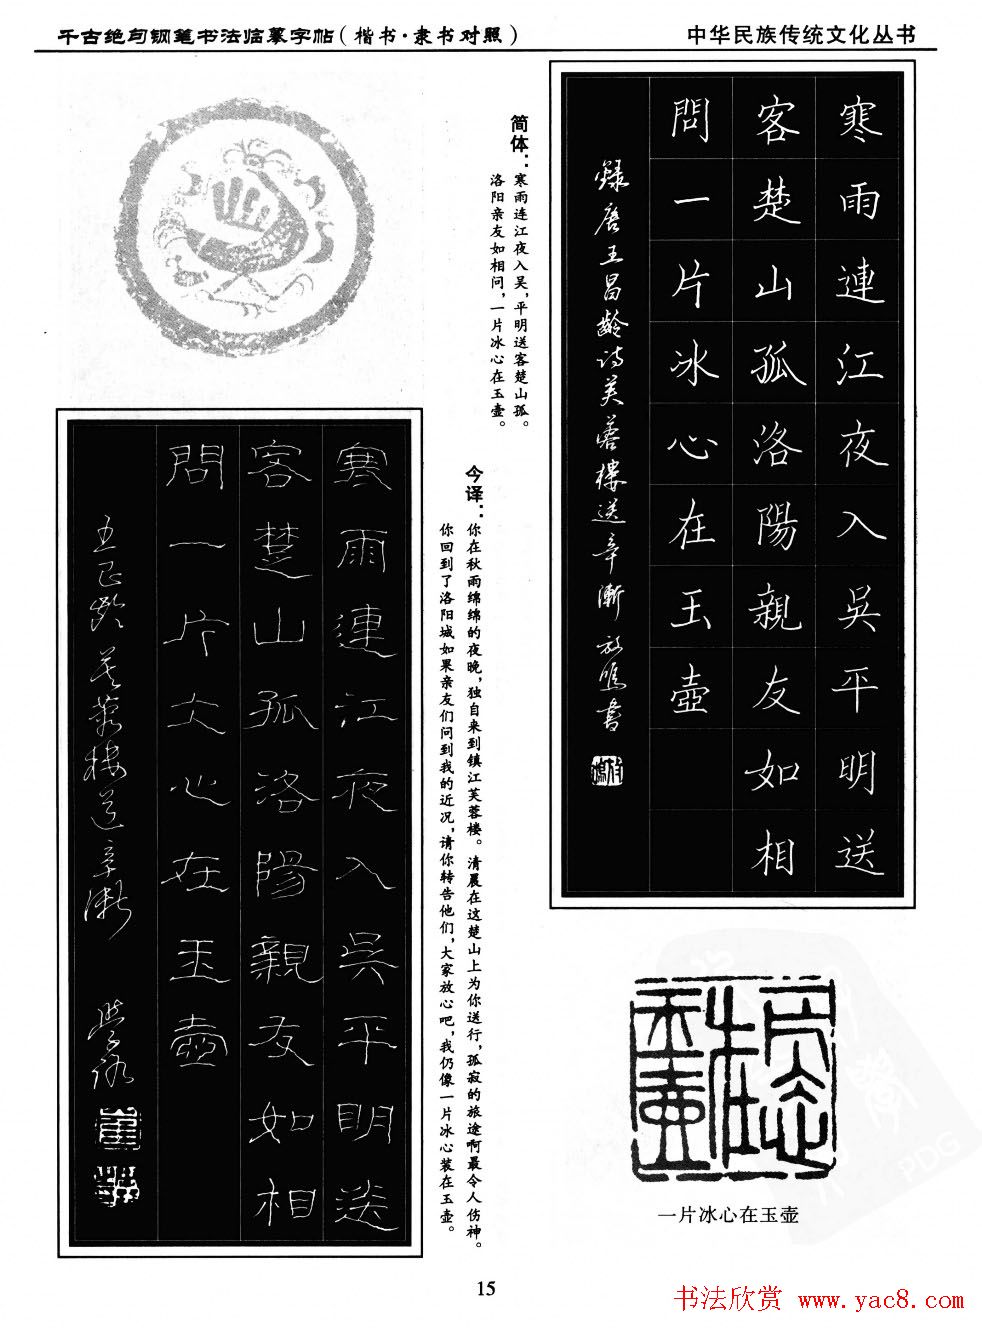 千古绝句钢笔书法临摹字帖(楷书·隶书对照)
中华民族传统文化丛书
寒雨連江夜入吳平明送
客楚山孤洛陽親友如相
問一片冰心在玉壺
錄唐王昌齡诗芙蓉樓送辛漸
简体:寒雨连江夜入吴,平明送客楚山孤。
洛阳亲友如相问,一片冰心在玉壶。
今译:你在秋雨绵绵的夜晚,独自来到镇江芙蓉楼。清晨在这楚山上为你送行,孤寂的旅途啊最令人伤神。
你回到了洛阳城如果亲友们问到我的近况,请你转告他们,大家放心吧,我仍像一片冰心装在玉壶。
寒雨連江夜入吳平明送
客楚山孤洛陽親友如相
問一片冰心在玉壺
王昌齡芙蓉樓送辛漸
一片冰心在玉壶
15
书法欣赏 www.yac8.com
PDG